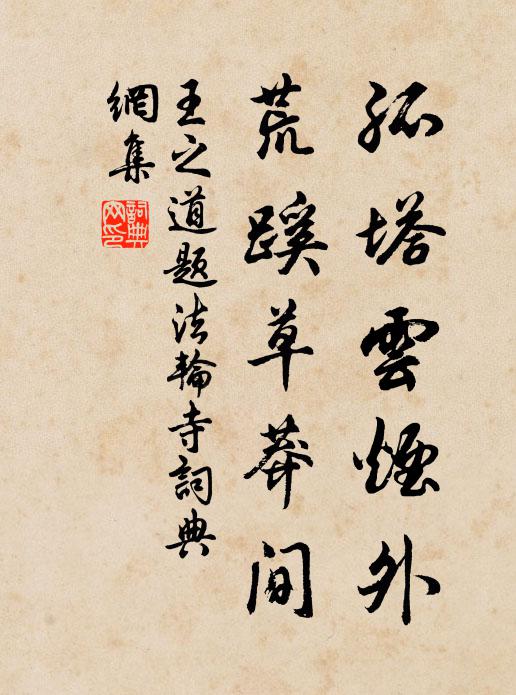 孤塔雲煙外
荒蹊草莽間
王之道題法輪寺詞典
網集
詞典
网印